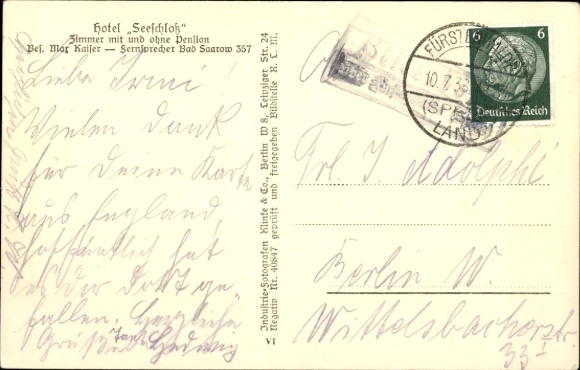 Hotel „Seeschloß"
Zimmer mit und ohne Pension
Bes. Max Kaiser — Fernsprecher Bad Saarow 357
Liebe Irmi!
Vielen Dank
für Deine Karte
aus England,
hoffentlich hat
es dir dort ge
fallen. Herzliche
Grüße Tante Hedwig
Industrie-Fotografen Klinke & Co., Berlin W 8, Leipziger Str. 24
Negativ Nr. 40847 geprüft und freigegeben Bildstelle R. L. M.
VI
FÜRSTENWALDE
10.7.
(SPREE)
LAND
6 6
Deutsches Reich
Frl. I. Adolphi
Berlin W.
Wittelsbacherstr
33 I